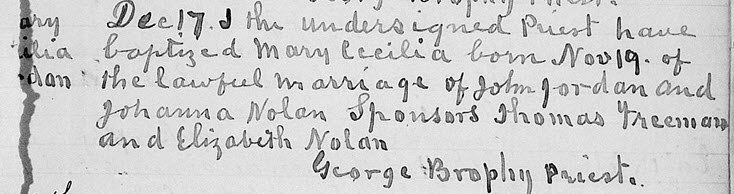 George Brophy Priest.
ary Dec 17. I the undersigned Priest have
ilia baptized Mary Cecilia born Nov 19. of
dan the lawful marriage of John Jordan and
Johanna Nolan Sponsors Thomas Freeman
and Elizabeth Nolan
George Brophy Priest.